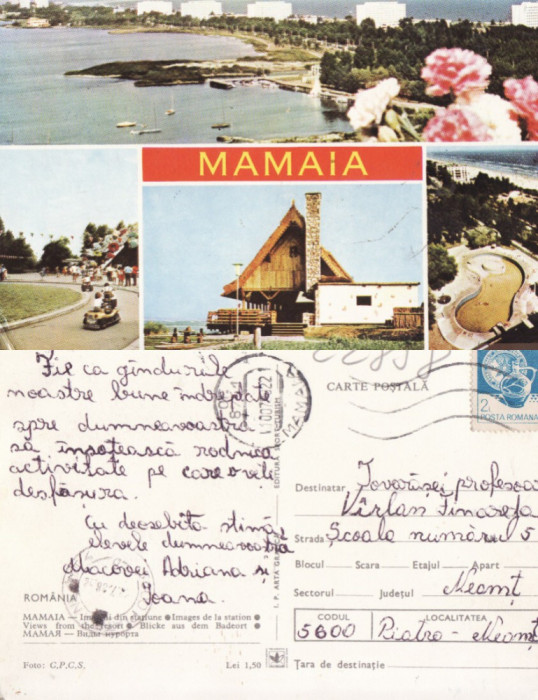 MAMAIA
Fie ca gîndurile
noastre bune îndreptate
spre dumneavoastră
să însoțească rodnica
activitate pe care o veți
desfășura.
Cu deosebită stimă,
elevele dumneavoastră
Macovei Adriana și
Ioana.
ROMÂNIA
MAMAIA — Imagini din stațiune ● Images de la station ●
Views from the resort ● Blicke aus dem Badeort ●
МАМАЯ — Виды курорта
Foto: C.P.C.S.
Lei 1,50
CARTE POȘTALĂ
2L
POSTA ROMANA
Destinatar Tovarășei profesoa
Vîrlan Tinareta
Strada Școala numărul 5
Blocul Scara Etajul Apart
Sectorul Județul Neamț
CODUL LOCALITATEA
5600 Piatra - Neamț
Țara de destinație